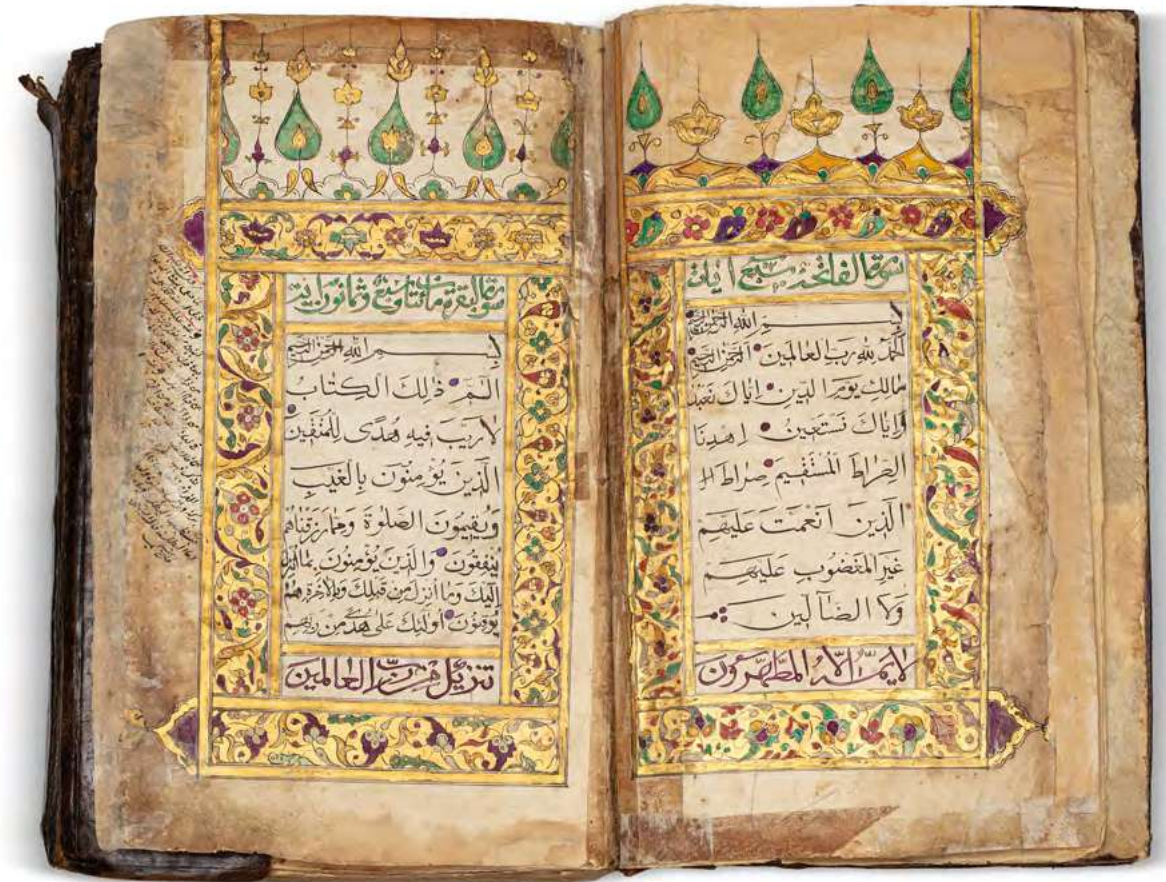 سورة الفاتحة سبع ايات
بسم الله الرحمن الرحيم
الحمد لله رب العالمين الرحمن الرحيم
مالك يوم الدين اياك نعبد
وَاياك نستعين اهدنا
الصراط المستقيم صراط ا
الذين انعمت عليهم
غير المغضوب عليهم
ولا الضآلين
لا يمسه الا المطهرون
سورة البقرة مائتان وسبع وثمانون اية
بسم الله الرحمن الرحيم
الم ذلك الكتاب
لا ريب فيه هدى للمتقين
الذين يؤمنون بالغيب
ويقيمون الصلوة ومما رزقناهم
ينفقون والذين يؤمنون بما انزل
اليك وما انزل من قبلك وبالاخرة هم
يوقنون اولئك على هدى من ربهم
تنزيل من رب العالمين